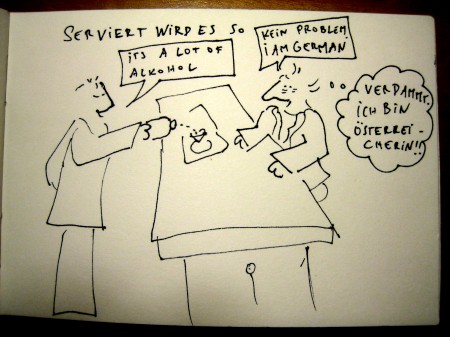 SERVIERT WIRD ES SO
ITS A LOT OF
ALKOHOL
KEIN PROBLEM.
I AM GERMAN
VERDAMMT,
ICH BIN
ÖSTERREI-
CHERIN!!